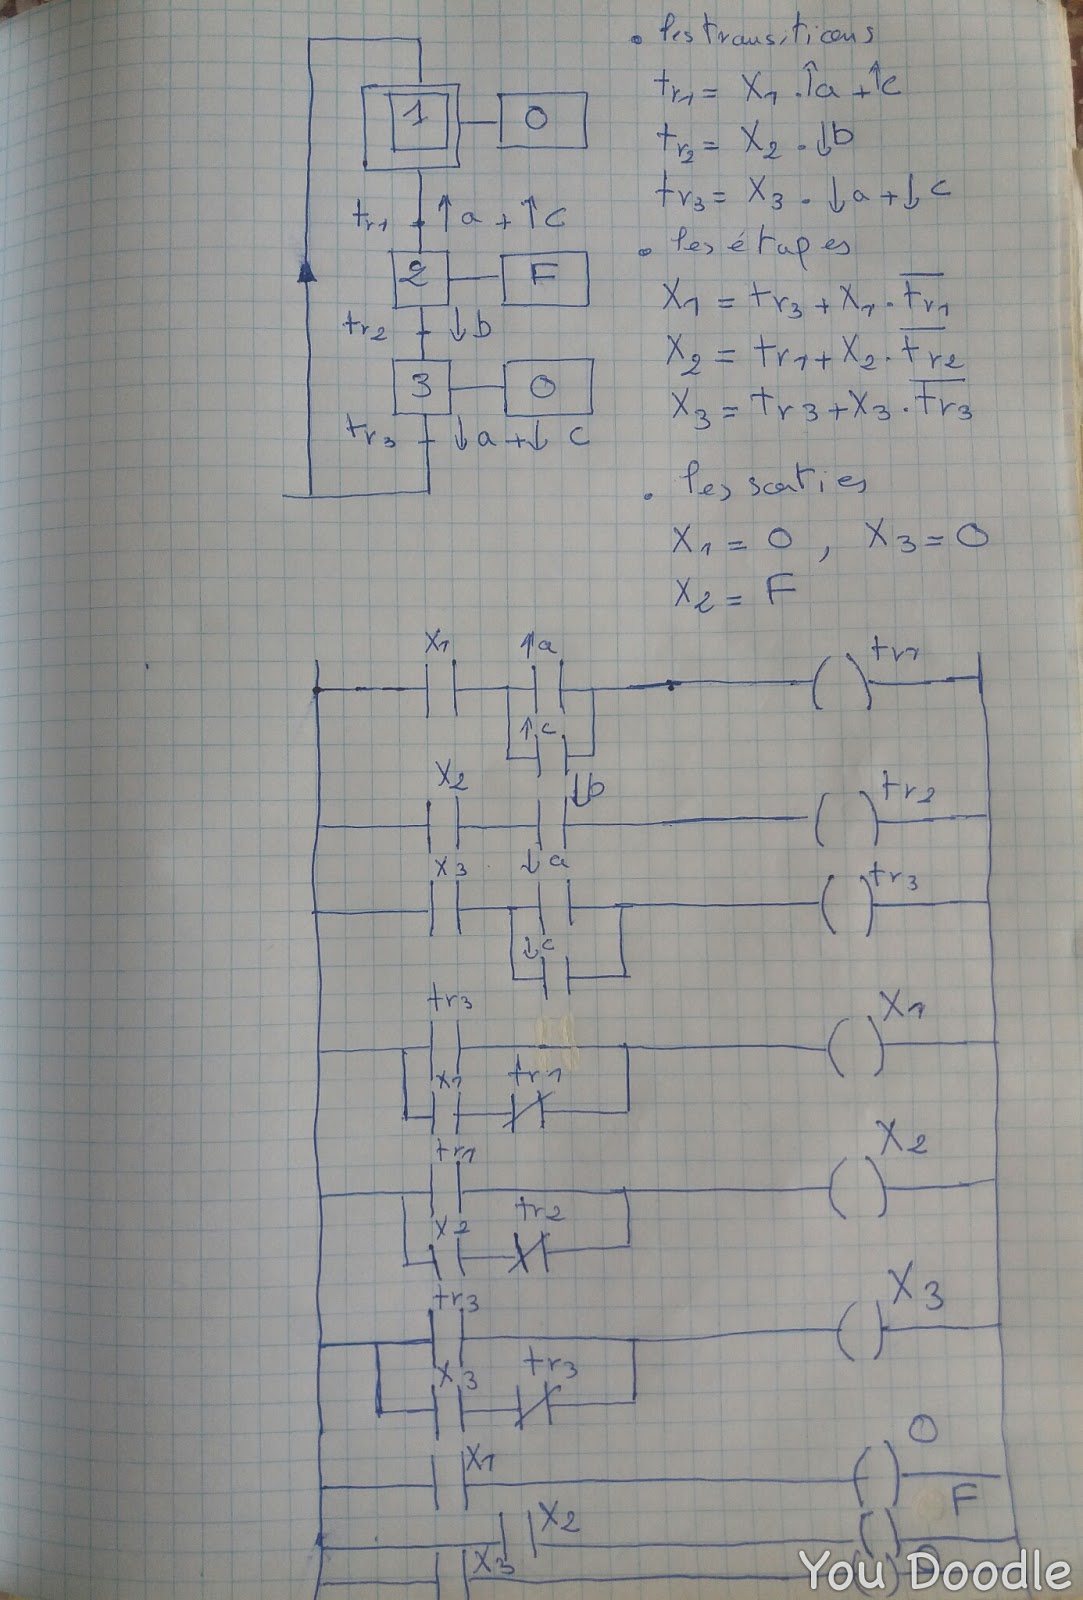 1 O
tr1 ↑a + ↑c
2 F
tr2 ↓b
3 O
tr3 ↓a + ↓c
• les transitions
tr1 = X1 . ↑a + ↑c
tr2 = X2 . ↓b
tr3 = X3 . ↓a + ↓c
• les étapes
X1 = tr3 + X1 . t̅r̅1̅
X2 = tr1 + X2 . t̅r̅2̅
X3 = tr3 + X3 . t̅r̅3̅
• les sorties
X1 = O , X3 = O
X2 = F
X1 ↑a tr1
↑c
X2 ↓b tr2
X3 ↓a tr3
↓c
tr3 X1
X1 tr1
tr1 X2
X2 tr2
tr3 X3
X3 tr3
X1 O
X2 F
X3 O
You Doodle